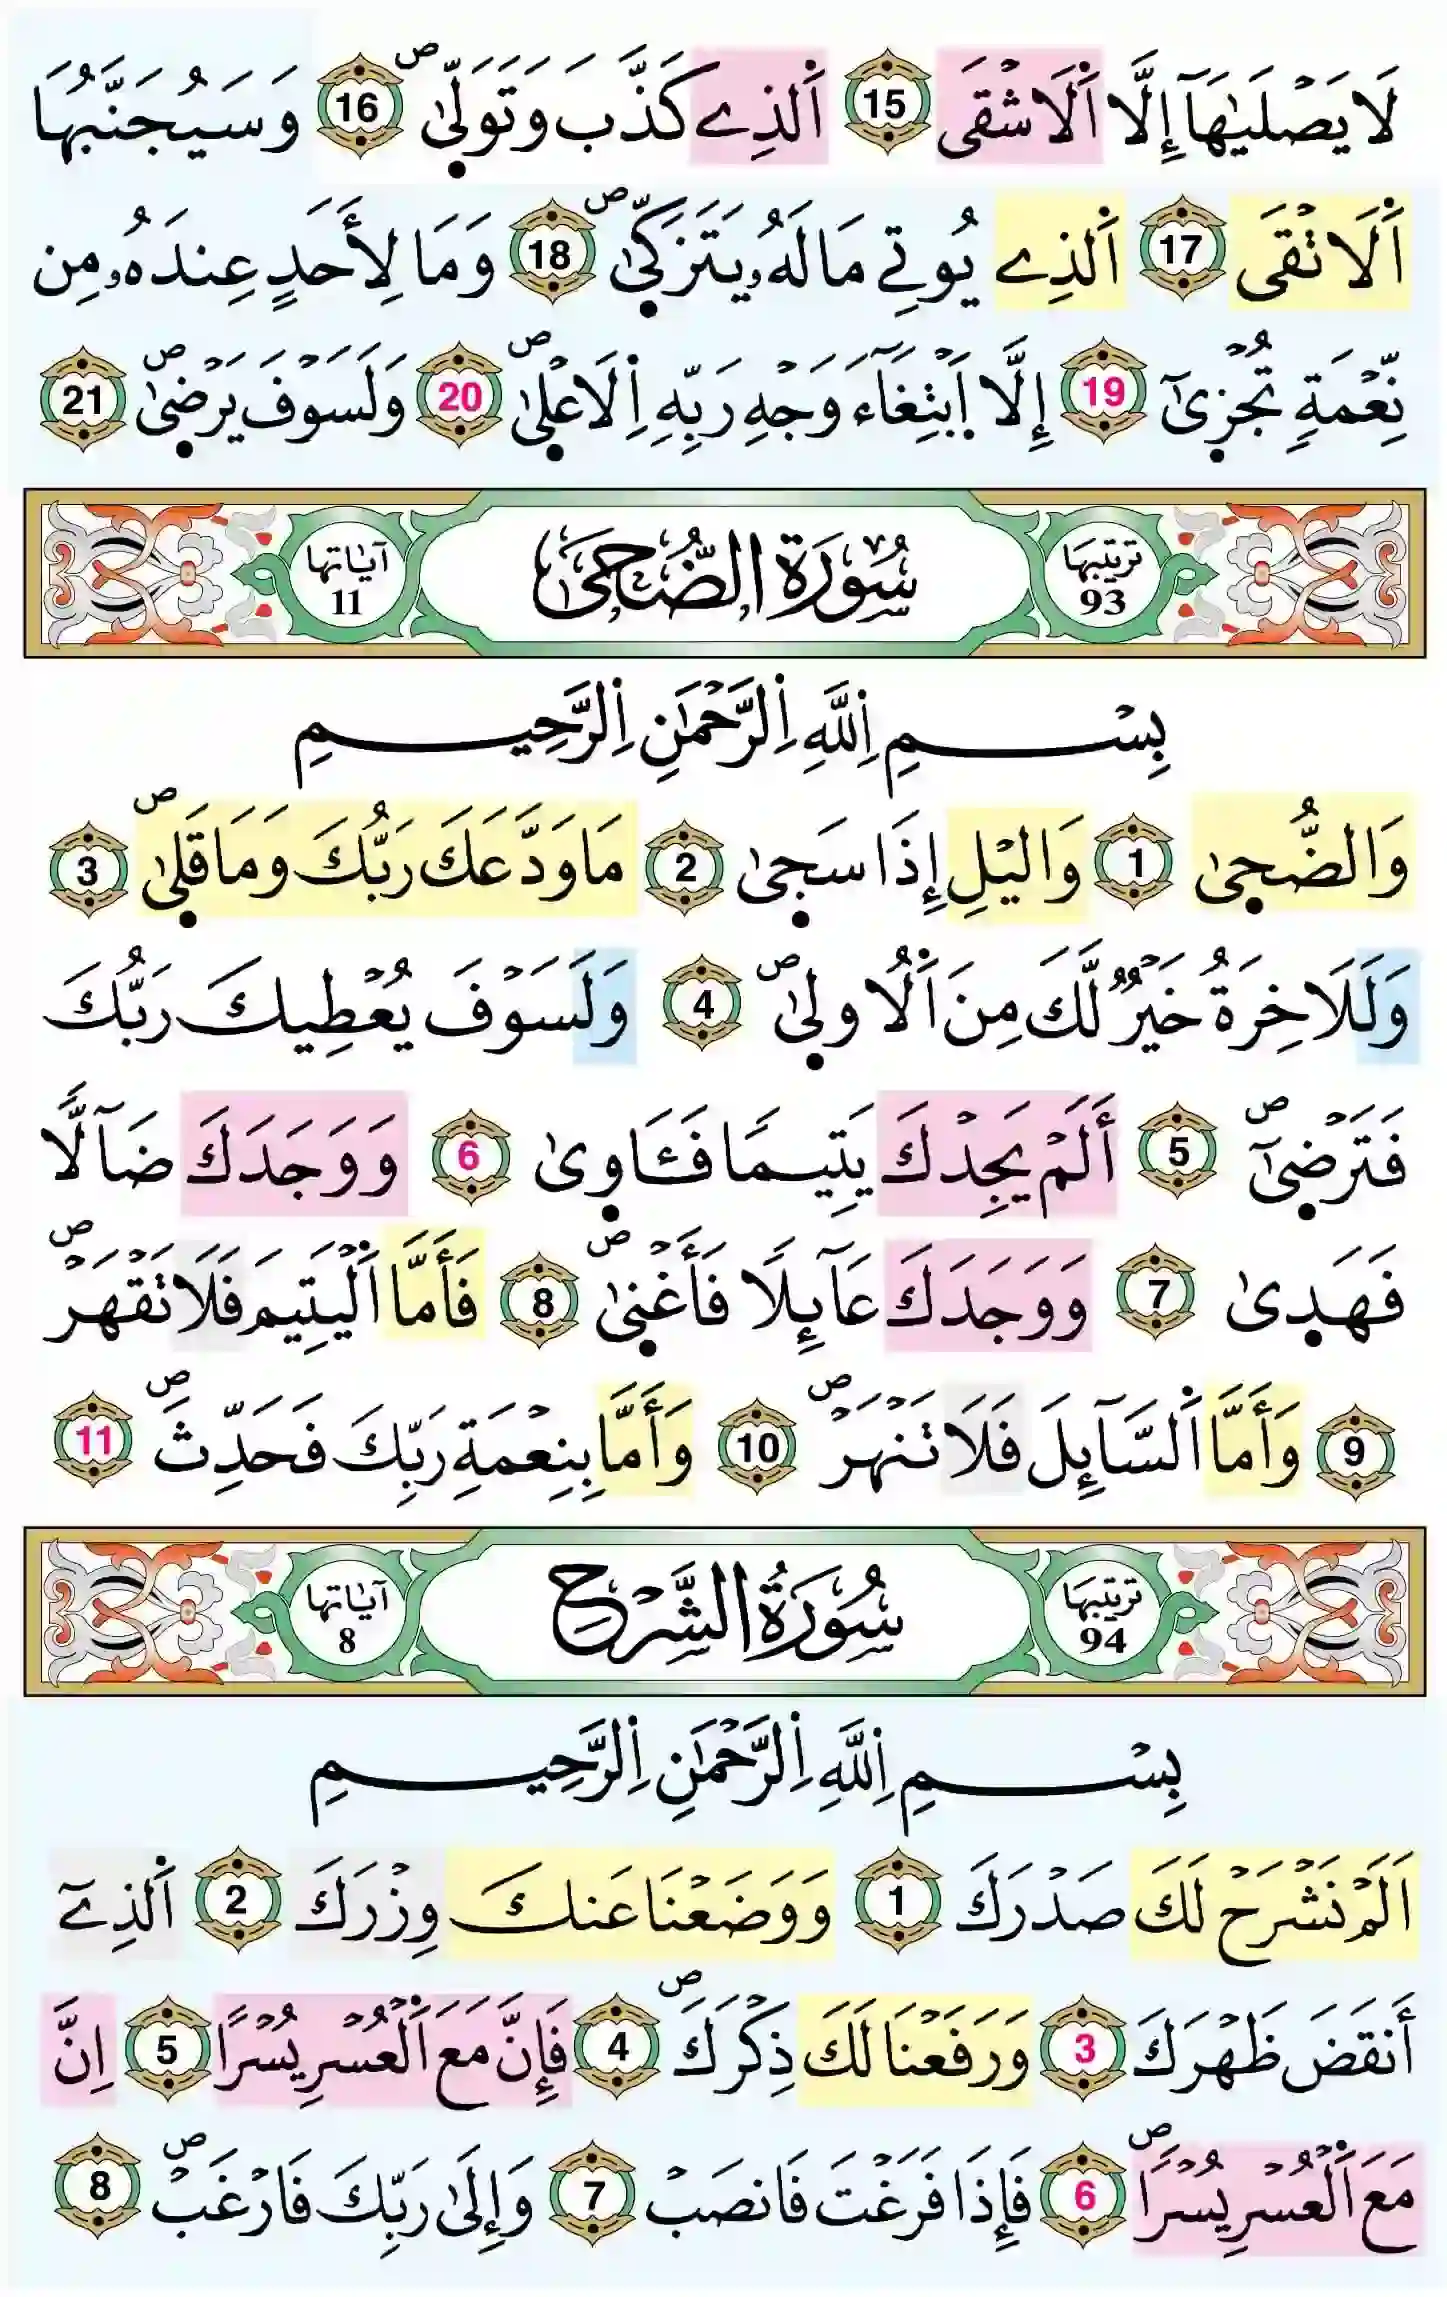 لَا يَصْلَيٰهَآ إِلَّا اَ۬لَاشْقَى 15 اَ۬لذِے كَذَّبَ وَتَوَلّ۪ىٰۖ 16 وَسَيُجَنَّبُهَا
اَ۬لَاتْقَى 17 اَ۬لذِے يُوتِے مَالَهُۥ يَتَزَكّ۪ىٰۖ 18 وَمَا لِأَحَدٍ عِندَهُۥ مِن
نِّعْمَةٍ تُجْز۪ىٰٓ 19 إِلَّا اَ۪بْتِغَآءَ وَجْهِ رَبِّهِ اِ۬لَاعْل۪ىٰۖ 20 وَلَسَوْفَ يَرْض۪ىٰۖ 21
ترتيبها 93 سُورَةُ الضُّحَىٰ آيَاتها 11
بِسْمِ اِ۬للَّهِ اِ۬لرَّحْمَٰنِ اِ۬لرَّحِيمِ
وَالضُّح۪ىٰ 1 وَاليْلِ إِذَا سَج۪ىٰ 2 مَا وَدَّعَكَ رَبُّكَ وَمَا قَل۪ىٰۖ 3
وَلَلَاخِرَةُ خَيْرٌ لَّكَ مِنَ اَ۬لُاول۪ىٰۖ 4 وَلَسَوْفَ يُعْطِيكَ رَبُّكَ
فَتَرْض۪ىٰٓۖ 5 أَلَمْ يَجِدْكَ يَتِيمًا فَـَٔاو۪ىٰ 6 وَوَجَدَكَ ضَآلًّا
فَهَد۪ىٰ 7 وَوَجَدَكَ عَآئِلًا فَأَغْن۪ىٰۖ 8 فَأَمَّا اَ۬لْيَتِيمَ فَلَا تَقْهَرْۖ
9 وَأَمَّا اَ۬لسَّآئِلَ فَلَا تَنْهَرْۖ 10 وَأَمَّا بِنِعْمَةِ رَبِّكَ فَحَدِّثْۖ 11
ترتيبها 94 سُورَةُ الشَّرْح آيَاتها 8
بِسْمِ اِ۬للَّهِ اِ۬لرَّحْمَٰنِ اِ۬لرَّحِيمِ
اَلَمْ نَشْرَحْ لَكَ صَدْرَكَ 1 وَوَضَعْنَا عَنكَ وِزْرَكَ 2 اَ۬لذِےٓ
أَنقَضَ ظَهْرَكَ 3 وَرَفَعْنَا لَكَ ذِكْرَكَۖ 4 فَإِنَّ مَعَ اَ۬لْعُسْرِ يُسْرًا 5 اِنَّ
مَعَ اَ۬لْعُسْرِ يُسْرًاۖ 6 فَإِذَا فَرَغْتَ فَانصَبْ 7 وَإِلَىٰ رَبِّكَ فَارْغَبْۖ 8